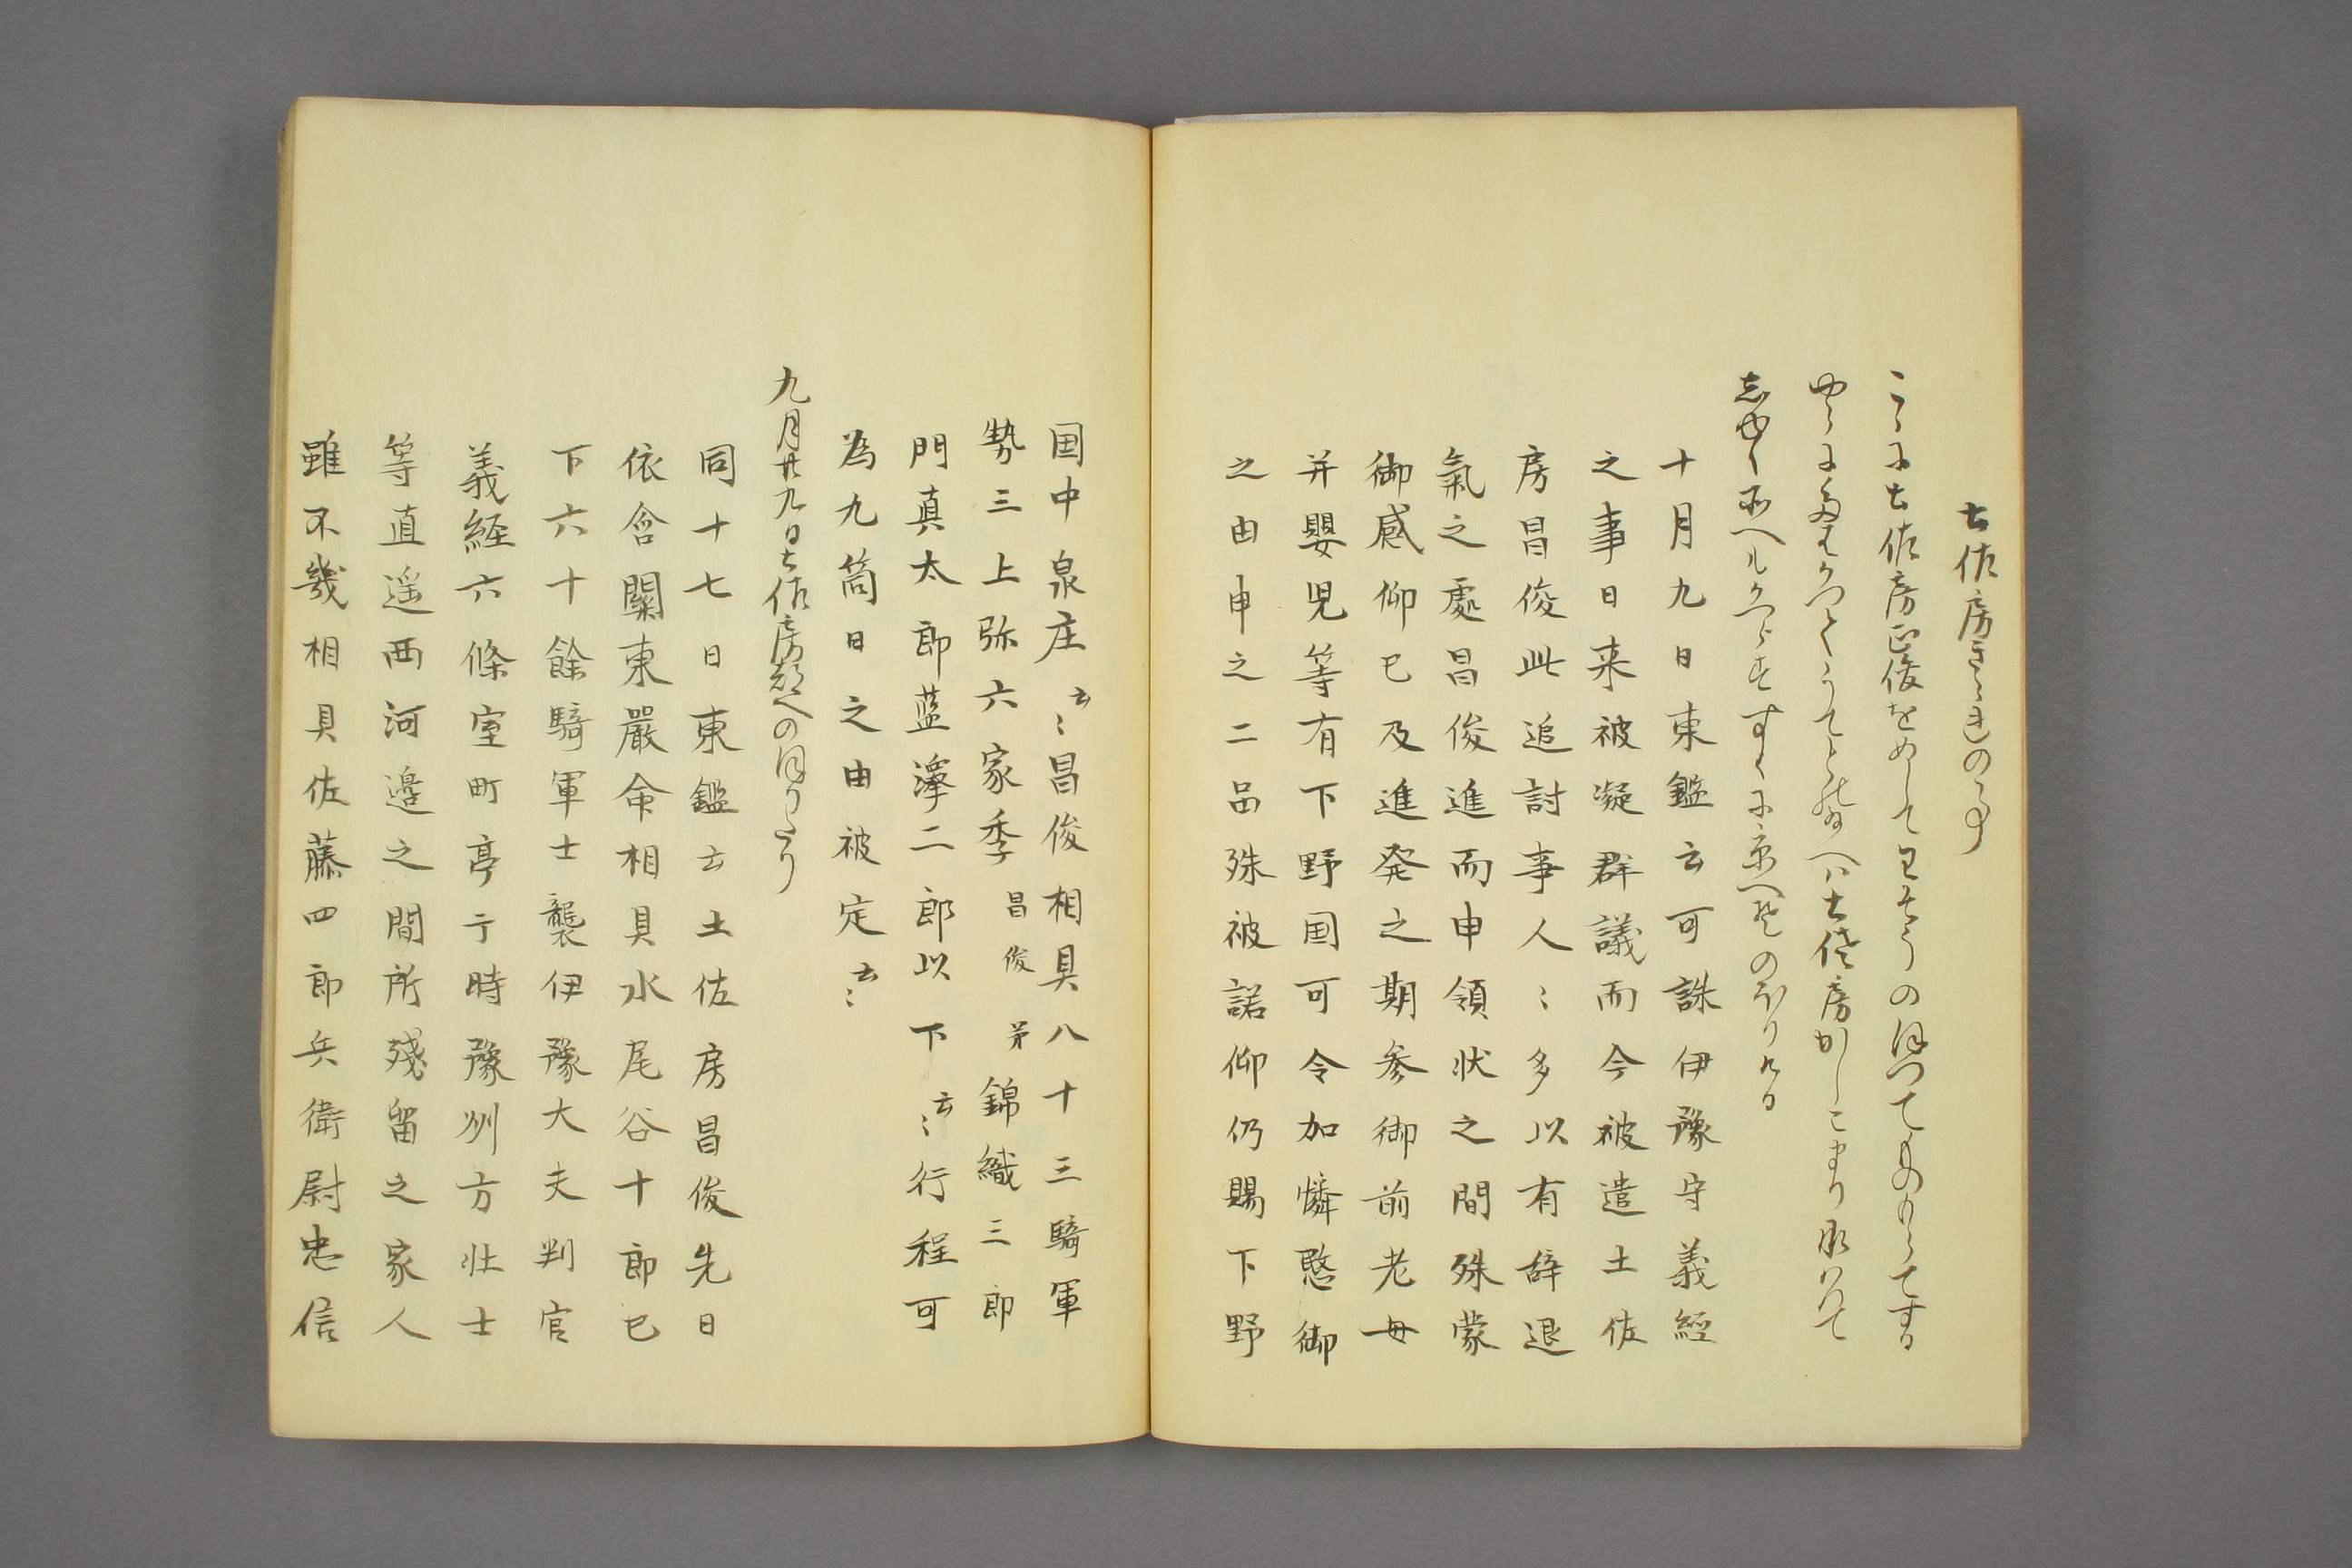 土佐房きられの事
こゝに土佐房正俊をめしてわそうのほつてものまてする
やうにてたはかつてうてとの給へは土佐房かしこまり承はて
志ゆく所へもかへらすすくに京へそのほりける
十月九日東鑑云可誅伊豫守義經
之事日来被凝群議而今被遣土佐
房昌俊此追討事人〻多以有辞退
氣之處昌俊進而申領状之間殊蒙
御感仰已及進発之期参御前老母
并嬰児等有下野国可令加憐愍御
之由申之二品殊被諾仰仍賜下野
国中泉庄云〻昌俊相具八十三騎軍
勢三上弥六家季昌俊弟錦織三郎
門真太郎藍澤二郎以下云〻行程可
為九箇日之由被定云〻
九月廿九日土佐房都へのほりたり
同十七日東鑑云土佐房昌俊先日
依含關東嚴命相具水尾谷十郎已
下六十餘騎軍士襲伊豫大夫判官
義経六條室町亭于時豫州方壮士
等直遥西河邉之間所殘留之家人
雖不幾相具佐藤四郎兵衛尉忠信